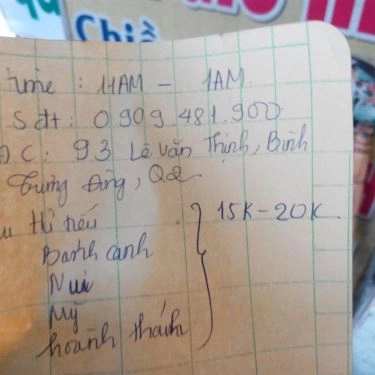 Chiề
time : 11AM - 1AM.
Sđt : 0909.481.900
ĐC : 93 Lê Văn Thịnh, Bình
Trưng Đông, Q2.
Hủ tiếu } 15K - 20K
Bánh canh
Nui
Mỳ
hoành thánh